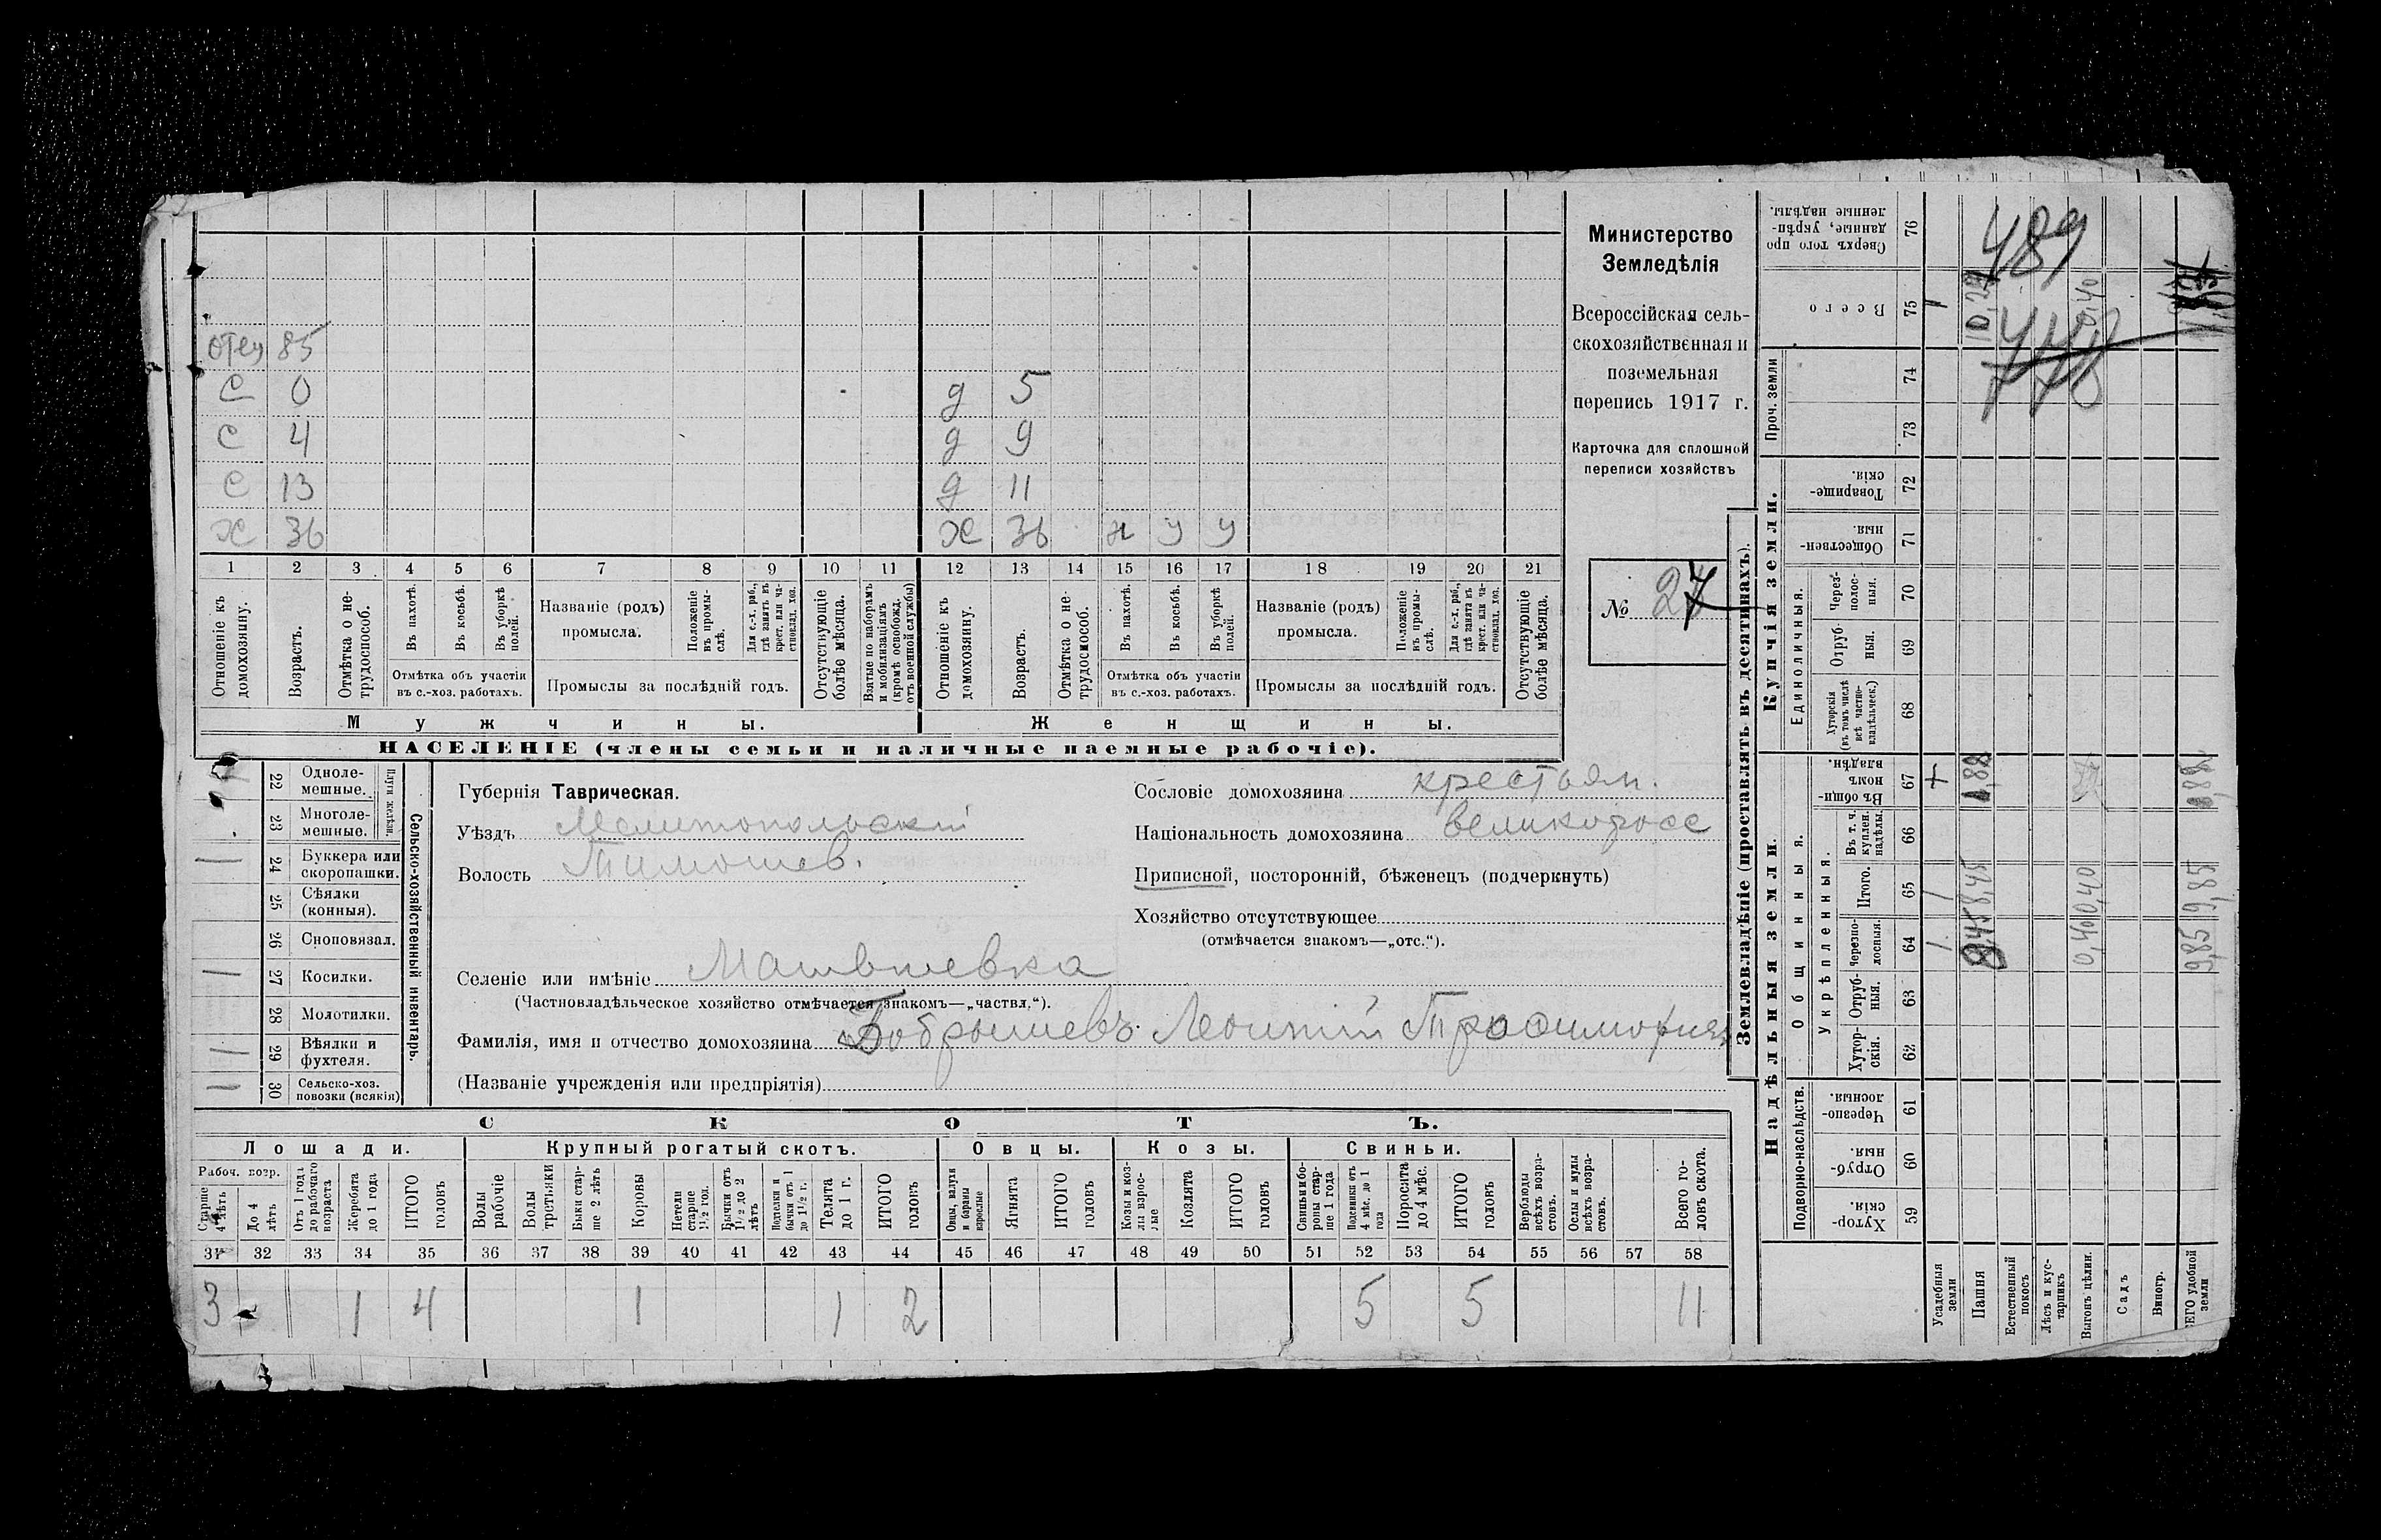 Министерство
Земледѣлія
Всероссійская сель-
скохозяйственная и
поземельная
перепись 1917 г.
Карточка для сплошной
переписи хозяйствъ
№ 27
489
отец 85
С 0 д 5
С 4 д 9
С 13 д 11
Х 36 Х 36 н у у
1 2 3 4 5 6 7 8 9 10 11 12 13 14 15 16 17 18 19 20 21
Отношеніе къ домохозяину.
Возрастъ.
Отмѣтка о не-трудоспособ.
Въ пахотѣ.
Въ косьбѣ.
Въ уборкѣ полей.
Отмѣтка объ участіи
въ с.-хоз. работахъ.
Названіе (родъ)
промысла.
Положеніе въ промы-слѣ.
Для с.-х. раб., гдѣ занятъ въ крест. или ча-стновлад. хоз.
Промыслы за послѣдній годъ.
Отсутствующіе болѣе мѣсяца.
Взятые по наборамъ и мобилизаціямъ (кромѣ освобожд. отъ военной службы)
Отношеніе къ домохозяину.
Возрастъ.
Отмѣтка о не-трудоспособ.
Въ пахотѣ.
Въ косьбѣ.
Въ уборкѣ полей.
Отмѣтка объ участіи
въ с.-хоз. работахъ.
Названіе (родъ)
промысла.
Положеніе въ промы-слѣ.
Для с.-х. раб., гдѣ занята въ крест. или ча-стновлад. хоз.
Промыслы за послѣдній годъ.
Отсутствующіе болѣе мѣсяца.
Мужчины. Женщины.
НАСЕЛЕНІЕ (члены семьи и наличные наемные рабочіе).
Сельско-хозяйственный инвентарь.
Плуги желѣзн.
22 Одноле-мешные.
23 Многоле-мешные.
24 Буккера или скоропашки.
25 Сѣялки (конныя).
26 Сноповязал.
27 Косилки.
28 Молотилки.
29 Вѣялки и фухтеля.
30 Сельско-хоз. повозки (всякія)
Губернія Таврическая.
Уѣздъ Мелитопольскій
Волость Тимошев.
Сословіе домохозяина крестьян.
Національность домохозяина великоросс
Приписной, посторонній, бѣженецъ (подчеркнуть)
Хозяйство отсутствующее
(отмѣчается знакомъ—„отс.“).
Селеніе или имѣніе
(Частновладѣльческое хозяйство отмѣчается знакомъ—„частвл.“).
Фамилія, имя и отчество домохозяина
(Названіе учрежденія или предпріятія)
СКОТЪ.
Лошади. Крупный рогатый скотъ. Овцы. Козы. Свиньи.
Рабоч. возр.
Старше 4 лѣтъ
До 4 лѣтъ
Отъ 1 года до рабочаго возраста
Жеребята до 1 года
ИТОГО головъ
Волы рабочіе
Волы третьяки
Быки стар-ше 2 лѣтъ
Коровы
Нетели старше 1½ год.
Бычки отъ 1½ до 2 лѣтъ
Подтелки и бычки отъ 1 до 1½ г.
Телята до 1 г.
ИТОГО головъ
Овцы, валухи и бараны взрослые
Ягнята
ИТОГО головъ
Козы и коз-лы взрос-лые
Козлята
ИТОГО головъ
Свиньи и бо-ровы стар-ше 1 года
Подсвинки отъ 4 мѣс. до 1 года
Поросята до 4 мѣс.
ИТОГО головъ
Верблюды всѣхъ возра-стовъ.
Ослы и мулы всѣхъ возра-стовъ.
Всего го-ловъ скота.
31 32 33 34 35 36 37 38 39 40 41 42 43 44 45 46 47 48 49 50 51 52 53 54 55 56 57 58
3 1 4 1 1 2 5 5 11
Землевладѣніе (проставлять въ десятинахъ).
Надѣльныя земли. Купчія земли.
Подворно-наслѣдств. Общинныя. Единоличныя. Проч. земли
Укрѣпленныя.
59 Хутор-скія.
60 Отруб-ныя.
61 Черезпо-лосныя.
62 Хутор-скія.
63 Отруб-ныя.
64 Черезпо-лосныя.
65 Итого.
66 Въ т. ч. куплен. надѣлы.
67 Въ общин-номъ владѣн.
68 Хуторскія (въ томъ числѣ всѣ частно-владѣльческ.)
69 Отруб-ныя.
70 Через-полос-ныя.
71 Обществен-ныя.
72 Товарище-скія.
73
74
75 Всего
76 Сверхъ того про-данные, укрѣп-ленные надѣлы.
Усадебныя земли 1 1 + 1
Пашня 8,45 8,45
Естественный покосъ
Лѣсъ и кус-тарникъ
Выгонъ цѣлин. 0,40 0,40 0,40
Садъ
Виногр.
удобной земли 9,85 9,85